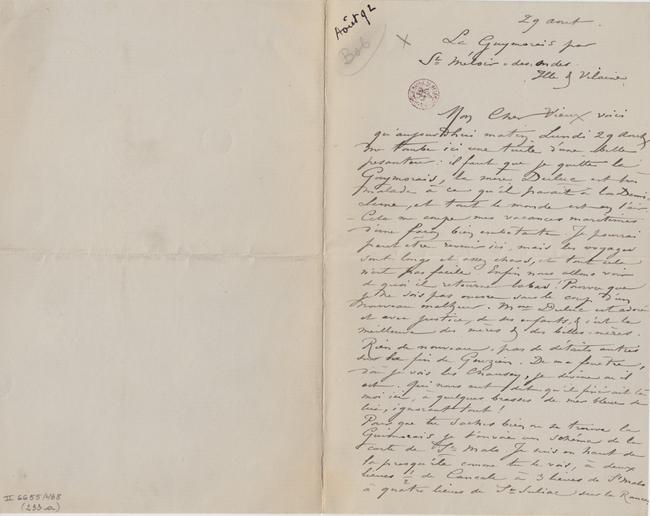 Août 92
Bob
29 aout.
La Guymorais par
St Méloir-des-Ondes.
Ille & Vilaine
Mon Cher Vieux voici
qu'aujourd'hui matin, Lundi 29 Août
me tombe ici une tuile d'une belle
pesanteur: il faut que je quitte la
Guymorais, la mère Duluc est très
malade à ce qu'il parait à la Demi-
Lune, et tout le monde est en l'air
- Cela me coupe mes vacances maritimes
d'une façon bien embêtante. Je pourrai
peut être revenir ici, mais les voyages
sont longs et assez chaos, et tout cela
n'est pas facile. Enfin nous allons voir
de quoi il retourne labas! Pourvu que
je ne sois pas encore sous le coup d'un
nouveau malheur. Mme Duluc est adorée
et avec justice, de ses enfants, & c'est la
meilleure des mères & des belles-mères.
Rien de nouveau, pas de détails autres
sur la fin de Gouzien. De ma fenêtre,
d'où je vois les Chausey, je devine où il
est. Qui nous eut dit qu'il finirait là
moi ici, à quelques brasses de mer bleue de
lui, ignorant tout!
Pour que tu saches bien où se trouve la
Guimorais je t'envoie un schéma de la
carte de St Malo. Je suis en haut de
la presqu'île comme tu le vois, à deux
lieues ½ de Cancale à 3 lieues de St Malo
à quatre lieues de St Suliac sur la Rance,
II 6655/468
(233 a)